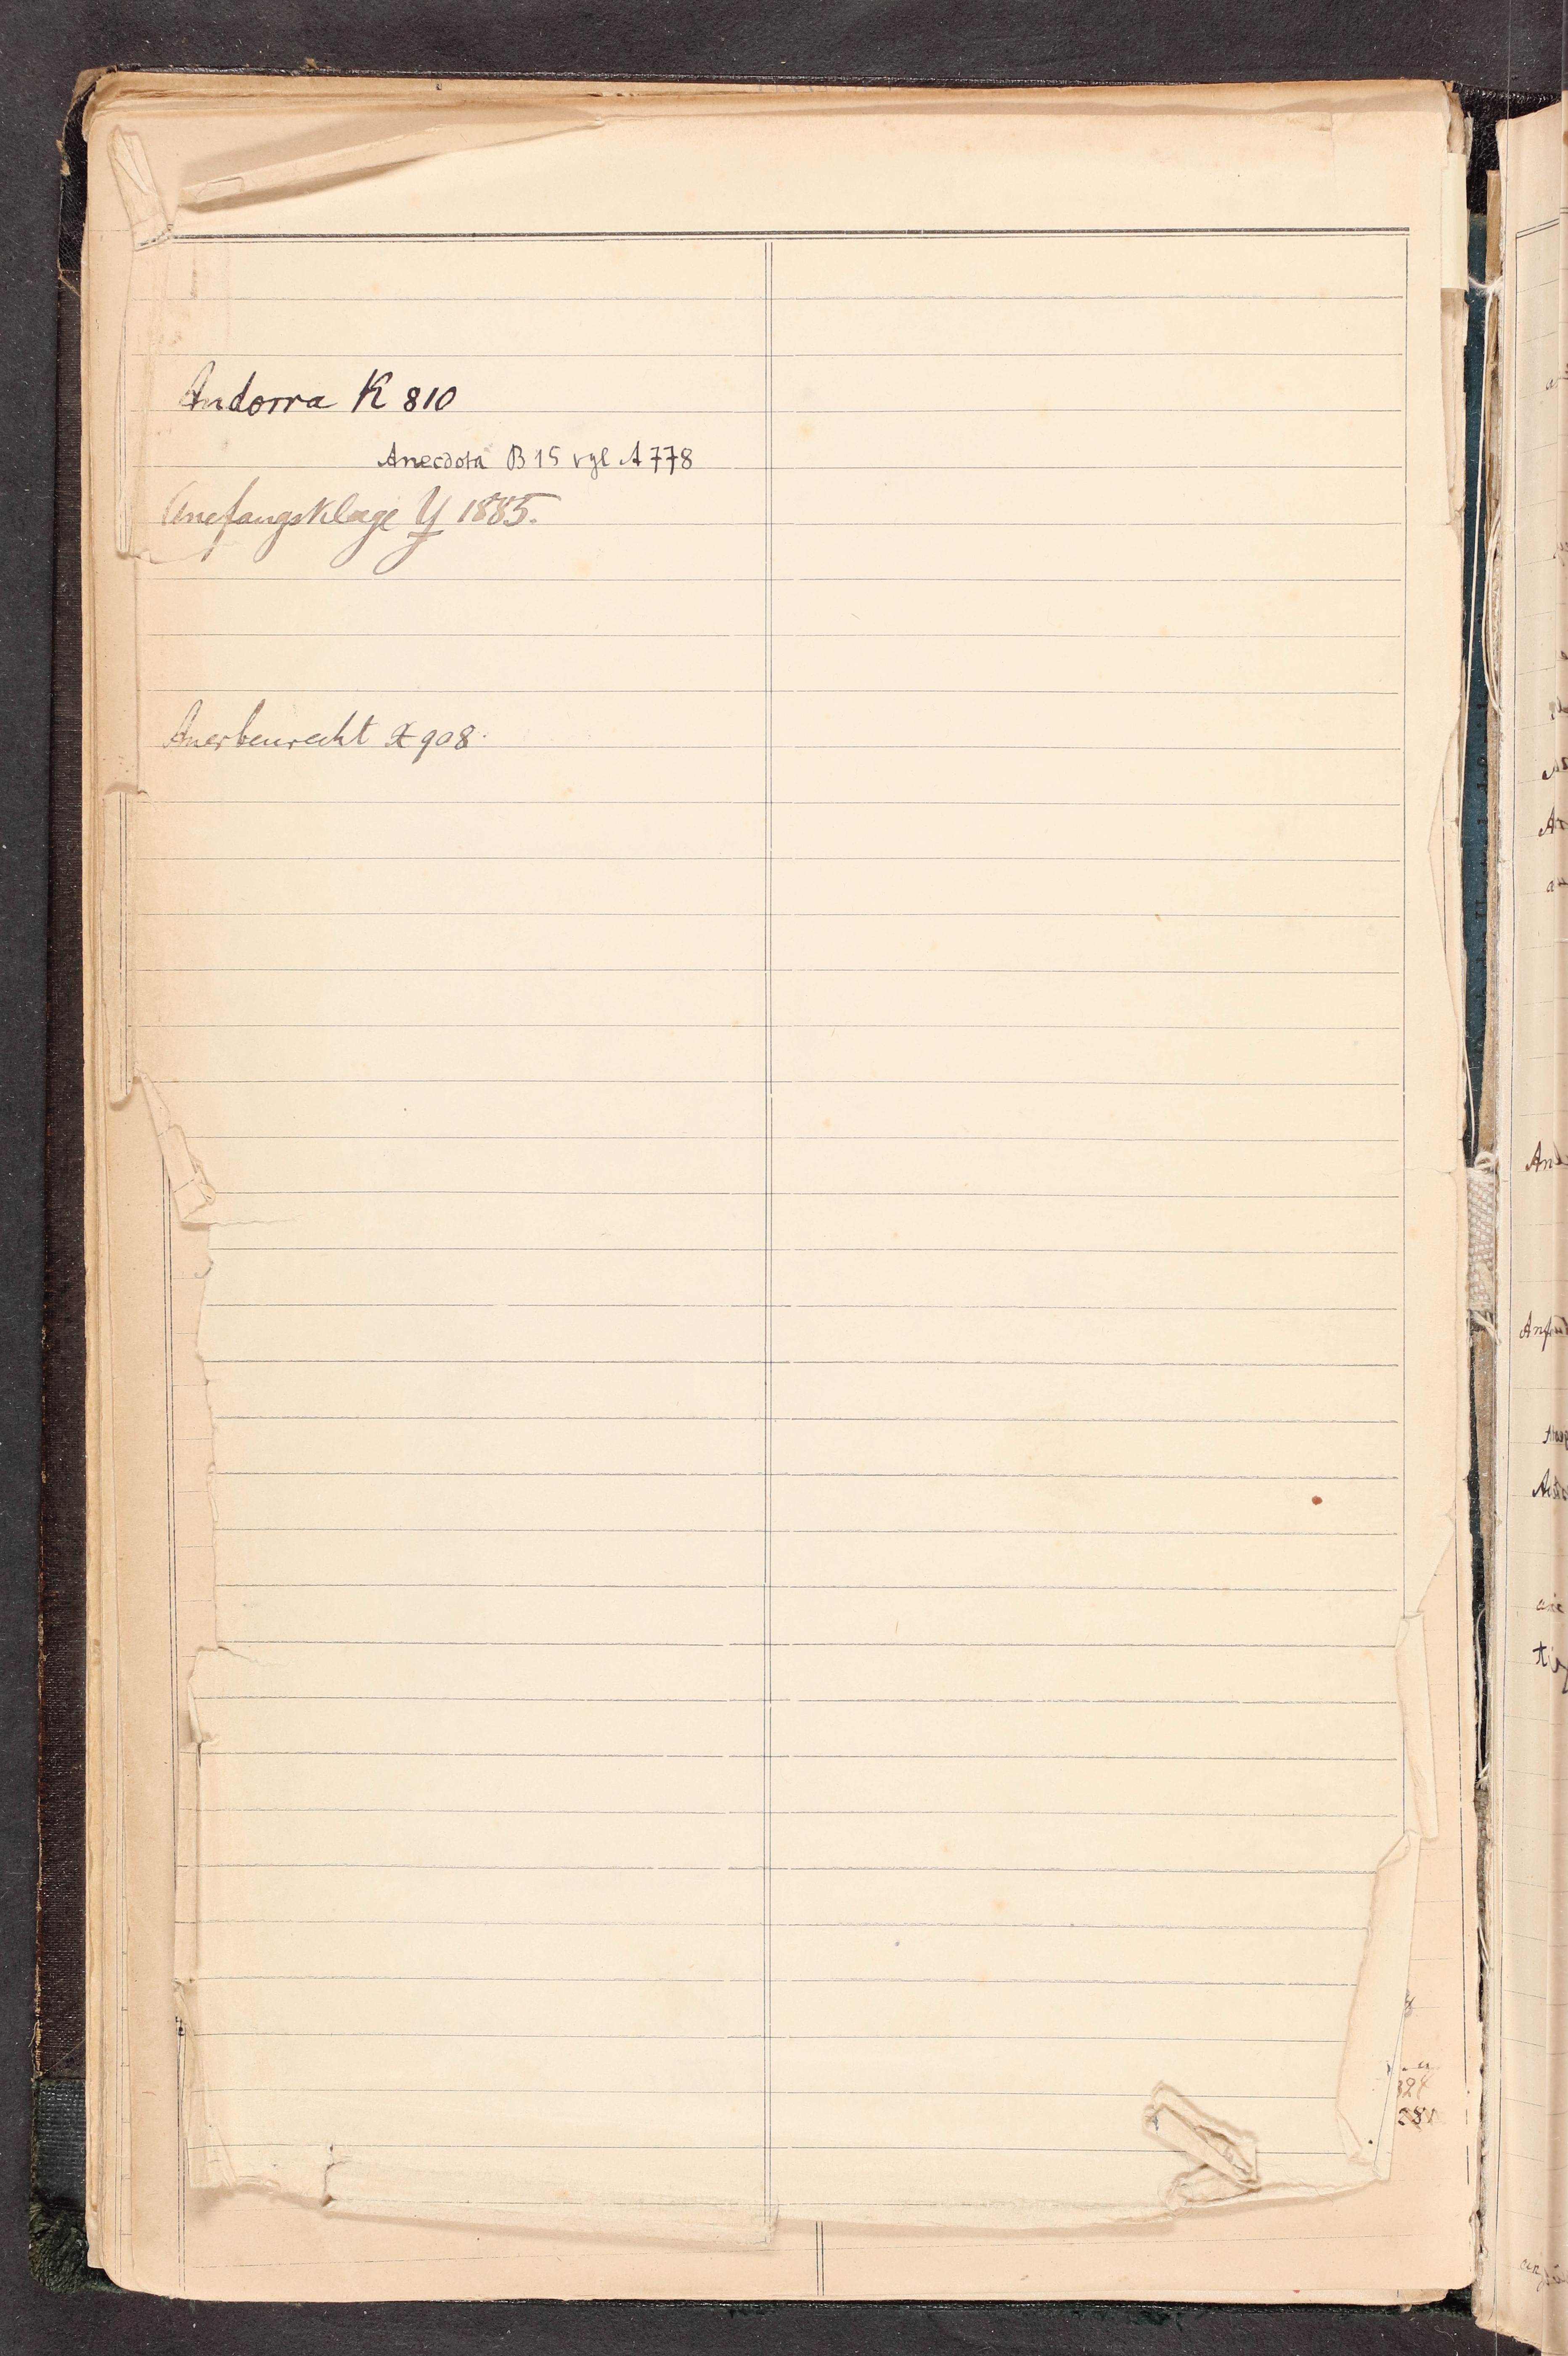 Andorra K 810
Anecdota B 15 vgl A 778
Anefangsklage Y 1885.
Anerbenrecht X 908.